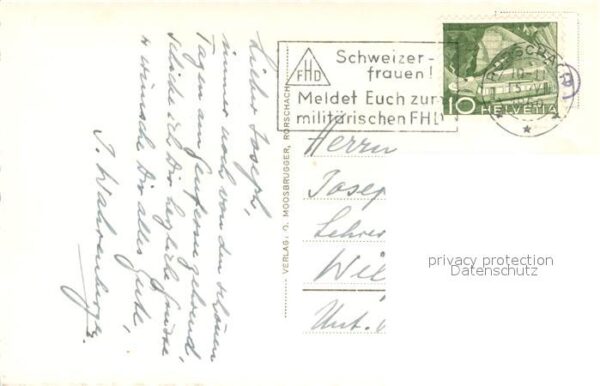 Lieber Joseph,
immer noch von den schönen
Tagen am Genfersee
Schicke ich Dir herzliche Grüsse
u wünsche Dir alles Gute,
J. Wahrenberger.
VERLAG: O. MOOSBRUGGER, RORSCHACH
FHD
Schweizer-
frauen!
Meldet Euch zum
militärischen FHD
RORSCHACH
10 HELVETIA
Herrn
Josep
Lehrer
Wil
Unt.
privacy protection
Datenschutz